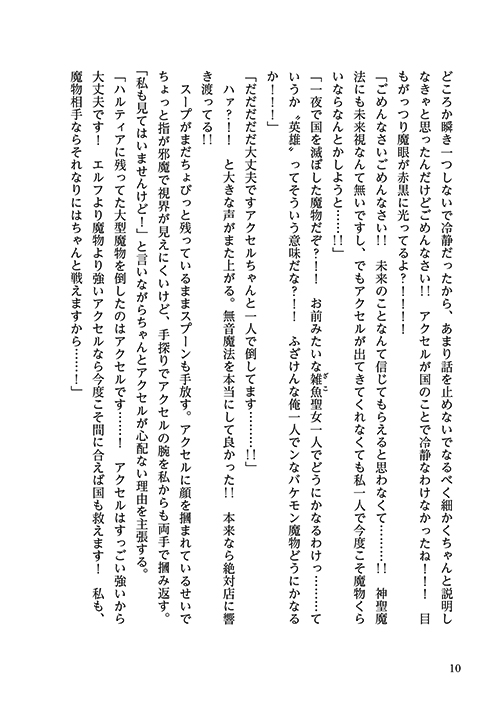 どころか瞬き一つしないで冷静だったから、あまり話を止めないでなるべく細かくちゃんと説明し
なきゃと思ったんだけどごめんなさい!! アクセルが国のことで冷静なわけなかったね!!! 目
もがっつり魔眼が赤黒に光ってるよ?!!!!
「ごめんなさいごめんなさい!! 未来のことなんて信じてもらえると思わなくて………!! 神聖魔
法にも未来視なんて無いですし、でもアクセルが出てきてくれなくても私一人で今度こそ魔物くら
いならなんとかしようと……!!」
「一夜で国を滅ぼした魔物だぞ?!! お前みたいな雑魚聖女一人でどうにかなるわけっ………て
ざこ
いうか〝英雄〟ってそういう意味だな?!! ふざけんな俺一人でンなバケモン魔物どうにかなる
か!!!」
「だだだだだ大丈夫ですアクセルちゃんと一人で倒してます………!!」
ハァ?!! と大きな声がまた上がる。無音魔法を本当にして良かった!! 本来なら絶対店に響
き渡ってる!!
スープがまだちょびっと残っているままスプーンも手放す。アクセルに顔を掴まれているせいで
ちょっと指が邪魔で視界が見えにくいけど、手探りでアクセルの腕を私からも両手で掴み返す。
「私も見てはいませんけど!」と言いながらちゃんとアクセルが心配ない理由を主張する。
「ハルティアに残ってた大型魔物を倒したのはアクセルです……! アクセルはすっごい強いから
大丈夫です! エルフより魔物より強いアクセルなら今度こそ間に合えば国も救えます! 私も、
魔物相手ならそれなりにはちゃんと戦えますから……!」
10